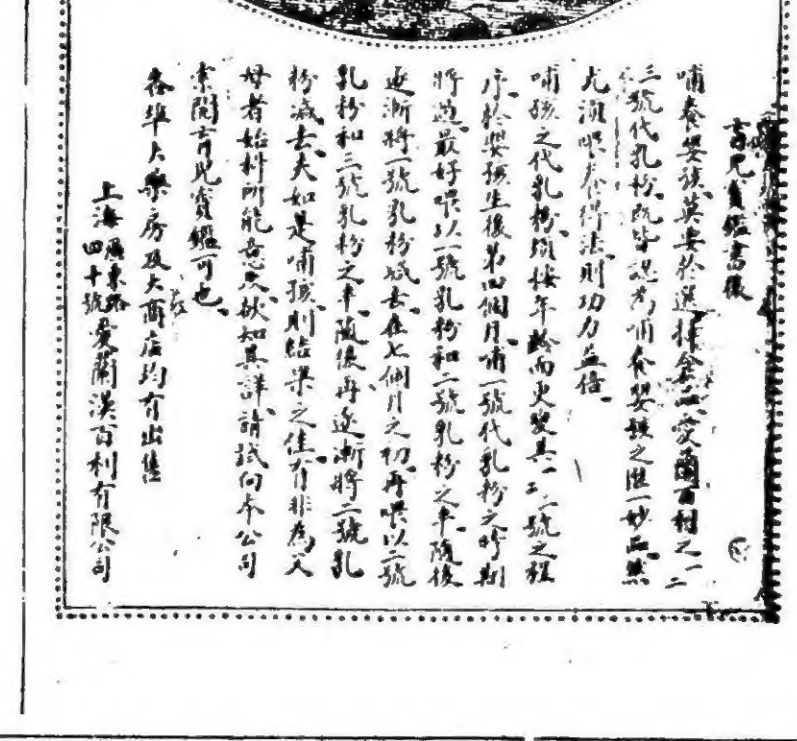 育兒寶鑑書後
哺養嬰孩莫要於選擇食品愛蘭百利之一二
三號代乳粉既皆認為哺養嬰孩之唯一妙品然
尤須喂養得法則功力益倍
哺孩之代乳粉須按年齡而更變其一二三號之程
序於嬰孩生後第四個月哺一號代乳粉之時期
將過最好喂以一號乳粉和二號乳粉之半隨後
逐漸將一號乳粉減去在七個月之初再喂以二號
乳粉和三號乳粉之半隨後再逐漸將二號乳
粉減去夫如是哺孩則結果之佳有非為父
母者始料所能意及欲知其詳請試向本公司
索閱育兒寶鑑可也
各埠大藥房及大商店均有出售
上海廣東路
四十號愛蘭漢百利有限公司